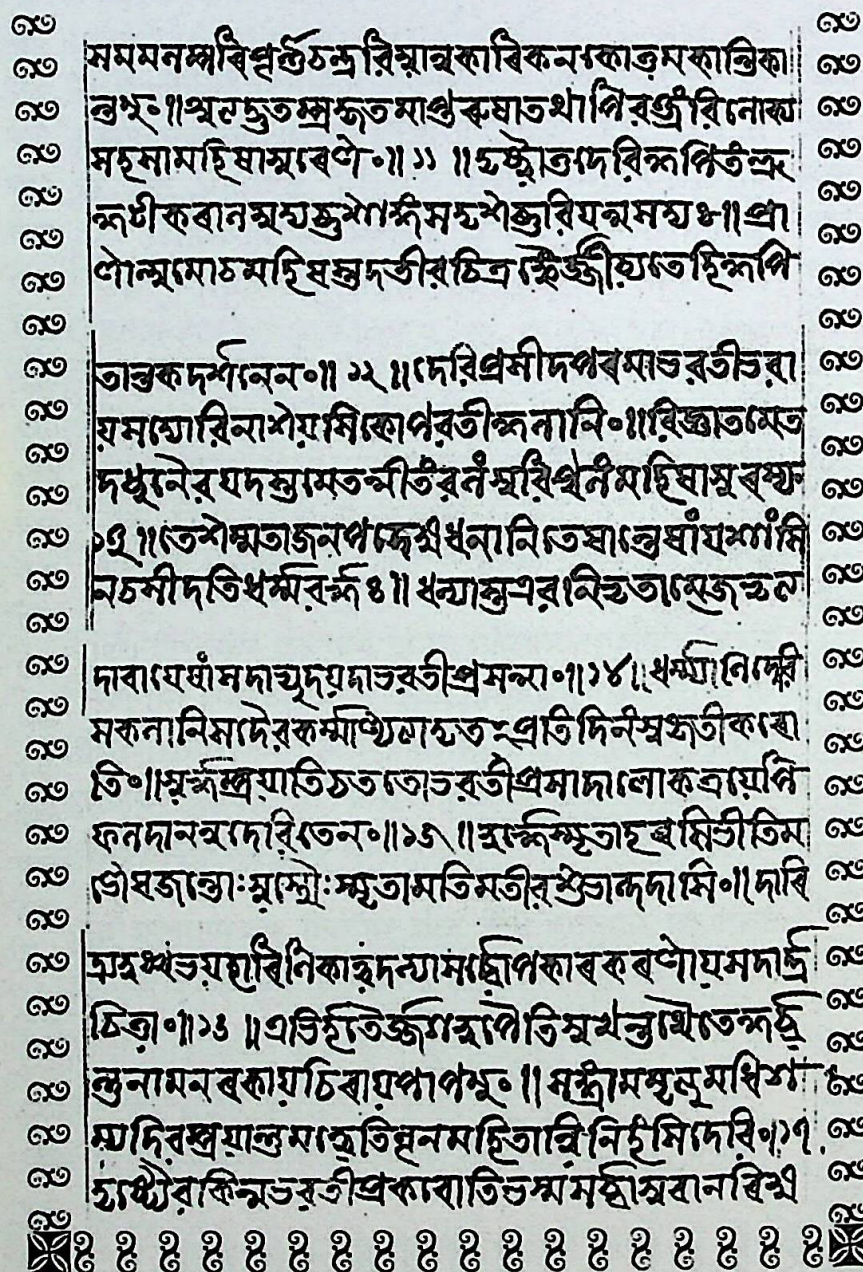 সমমলম্পৰিপূর্ণচন্দ্রবিম্বানুকাৰিকনকোত্তমকান্তিকা
ন্তম্॰॥অত্যদ্ভুতম্প্রহৃতমাত্তৰুষাতথাপিবক্ত্রংবিলোক্য
সহসামহিষাসুৰেণ॰॥১১॥দৃষ্ট্বাতুদেবিকুপিতংভ্রু
কুটীকৰালমুদ্যচ্ছশাঙ্কসদৃশচ্ছবিযন্নসদ্যঃ॥প্রা
ণান্মুমোচমহিষস্তদতীবচিত্রঙ্কৈর্জ্জীব্যতেহিকুপি
তান্তকদর্শনেন॰॥১২॥দেবিপ্রসীদপৰমাভবতীভবা
য়সদ্যোবিনাশয়সিকোপবতীকুলানি॰॥বিজ্ঞাতমেত
দধুনৈবযদস্তমেতন্নীতংবলংসুবিপুলংমহিষাসুৰস্য
১৩॥তেসম্মতাজনপদেষুধনানিতেষান্তেষাংযশাংসি
নচসীদতিধর্ম্মবর্গঃ॥ধন্যাস্তএবনিভৃতাত্মজভৃত্য
দাৰাযেষাংসদাভ্যুদয়দাভবতীপ্রসন্না॰॥১৪॥ধর্ম্ম্যাণিদেবি
সকলানিসদৈবকর্ম্মাণ্যত্যাদৃতঃপ্রতিদিনংসুকৃতীকৰো
তি॰॥স্বর্গম্প্রয়াতিচততোভবতীপ্রসাদাল্লোকত্রয়েপি
ফলদাননুদেবিতেন॰॥১৫॥দুর্গেস্মৃতাহৰসিভীতিম
শেষজন্তোঃস্বস্থৈঃস্মৃতামতিমতীবশুভান্দদাসি॰॥দাৰি
দ্র্যদুঃখভয়হাৰিণিকাত্বদন্যাসর্ব্বোপকাৰকৰণায়সদার্দ্র
চিত্তা॰॥১৬॥এভির্হতৈর্জ্জগদুপৈতিসুখন্তথৈতেকুর্ব্ব
ন্তুনামনৰকায়চিৰায়পাপম্॰॥সংগ্রামমৃত্যুমধিগ
ম্যদিবম্প্রয়ান্তুমত্বেতিনূনমহিতান্বিনিহংসিদেবি॰॥১৭
দৃষ্ট্বৈবকিন্নভবতীপ্রকৰোতিভস্মসর্ব্বাসুৰানৰিষু